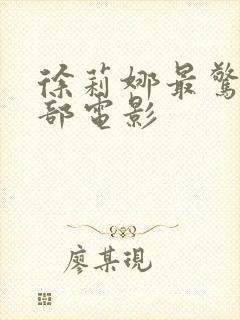 徐莉娜最驚
部電影
廖某現